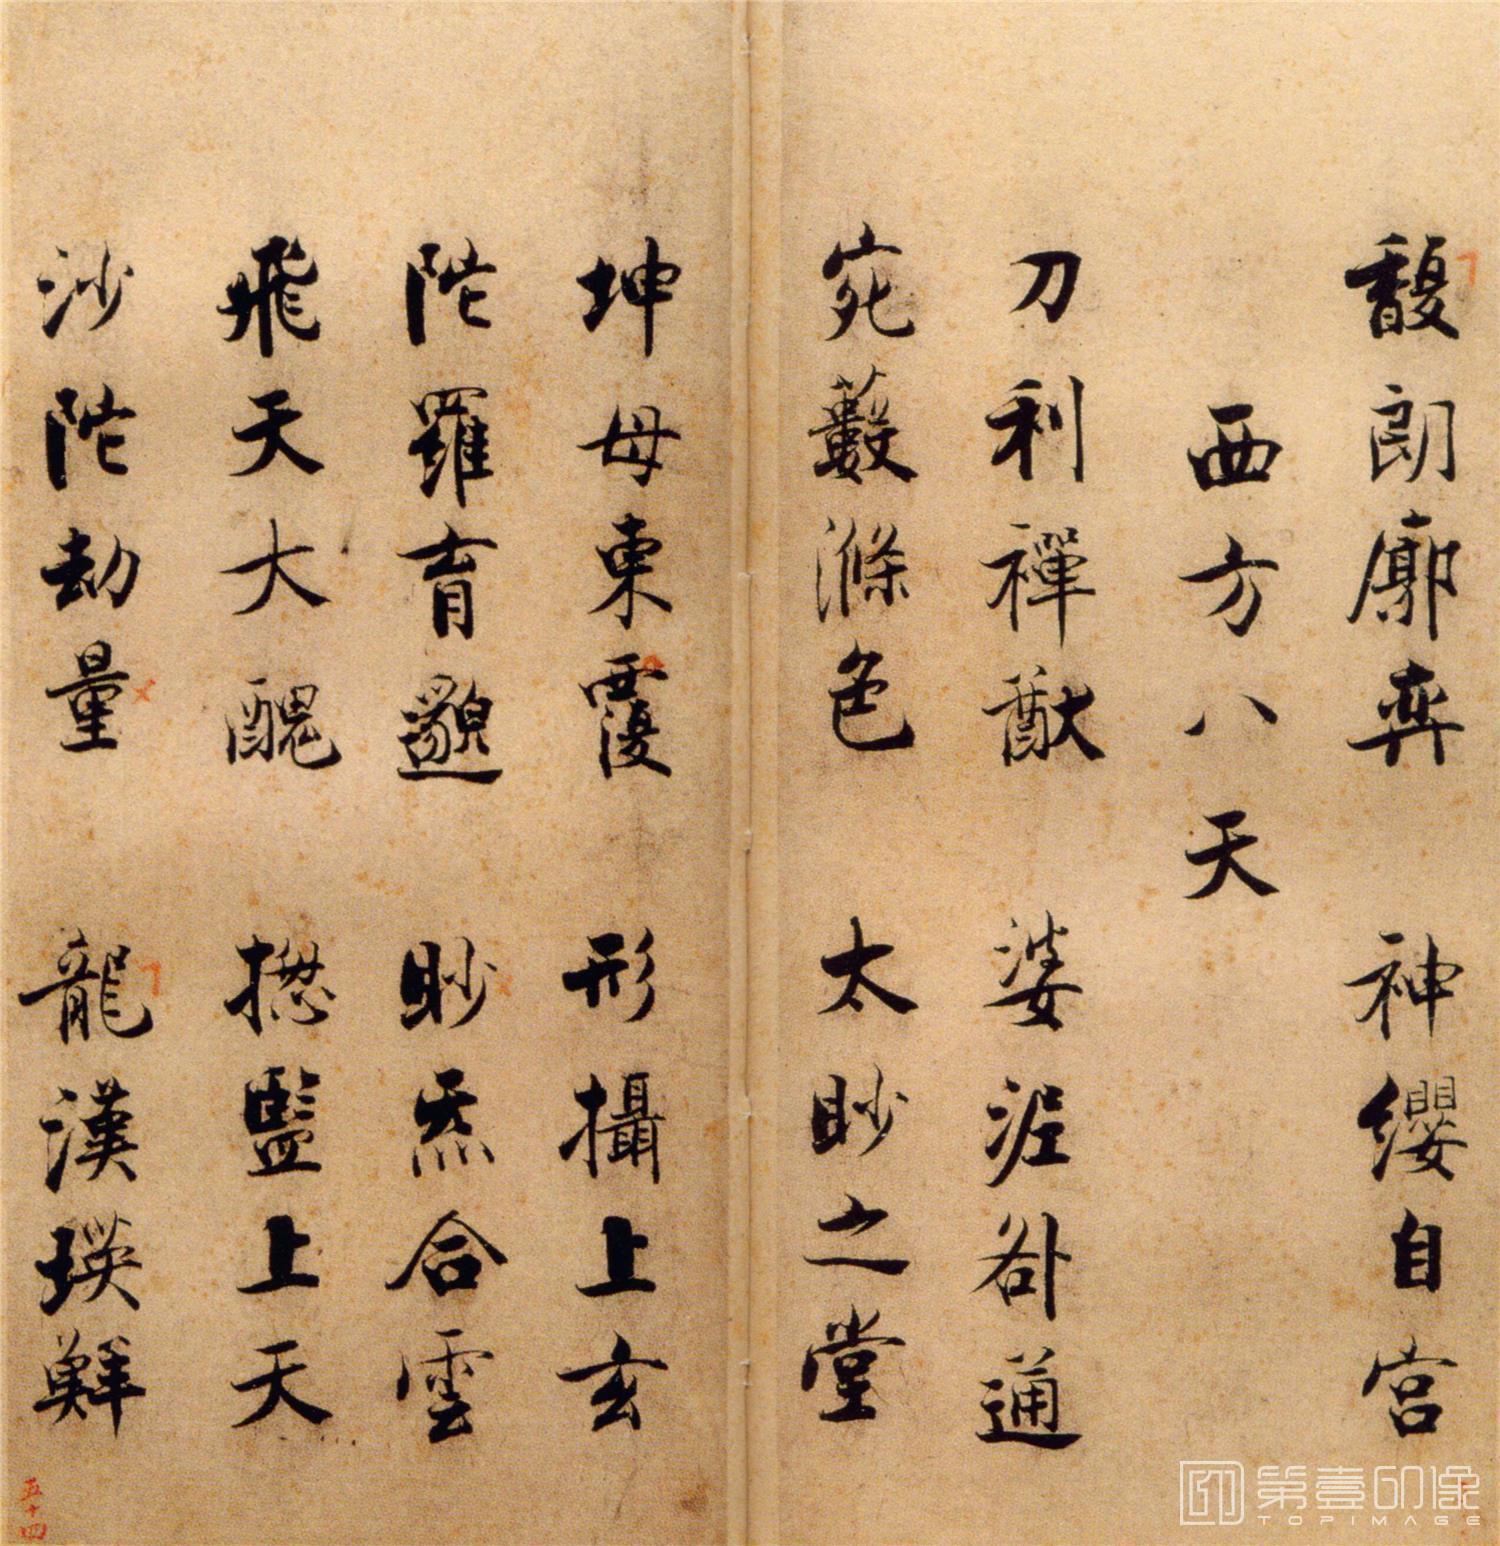 馥朗廓奕 神纓自宮
西方八天
刀利禪猷 婆泥咎通
宛藪滌色 太眇之堂
坤母東霞 形攝上玄
陀羅育邈 眇炁合雲
飛天大醜 揔監上天
沙陀劫量 龍漢瑛鮮
五十四
第壹印像
TOPIMAGE